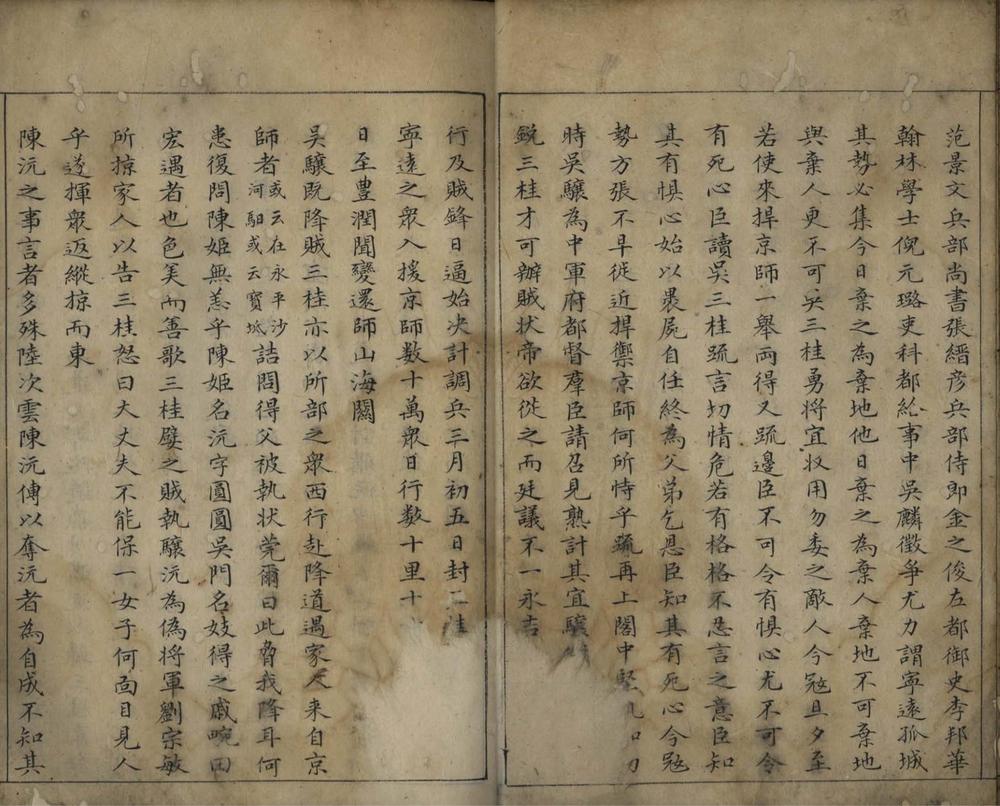 范景文兵部尚書張縉彦兵部侍即金之俊左都御史李邦華
翰林學士倪元璐吏科都給事中吳麟徵爭尤力謂寧遠孤城
其勢必集今日棄之為棄地他日棄之為棄人棄地不可棄地
與棄人更不可吳三桂勇将宜収用勿委之敵人今冦旦夕至
若使來捍京師一舉両得又疏邊臣不可令有惧心尤不可令
有死心臣讀吳三桂疏言切情危若有格格不忍言之意臣知
其有惧心始以裹屍自任終為父弟乞恩臣知其有死心今冦
勢方張不早徙近捍禦京師何所恃乎疏再上閣中堅
時吳驤為中軍府都督羣臣請召見熟計其宜驤
鋭三桂才可辦賊状帝欲從之而廷議不一永吉
行及賊鋒日逼始决計調兵三月初五日封三桂
寧遠之衆入援京師数十萬衆日行数十里十
日至豊潤聞變還師山海關
吳驤既降賊三桂亦以所部之衆西行赴降道遇家人来自京
師者或云在永平沙河馹或云寶坻詰問得父被執状莞爾曰此脅我降耳何
恚復問陳姬無恙乎陳姬名沅字圓圓吳門名妓得之戚畹田
宏遇者也色美而善歌三桂嬖之賊執驤沅為偽将軍劉宗敏
所掠家人以告三桂怒曰大丈夫不能保一女子何靣目見人
乎遂揮衆返縱掠而東
陳沅之事言者多殊陸次雲陳沅傳以奪沅者為自成不知其